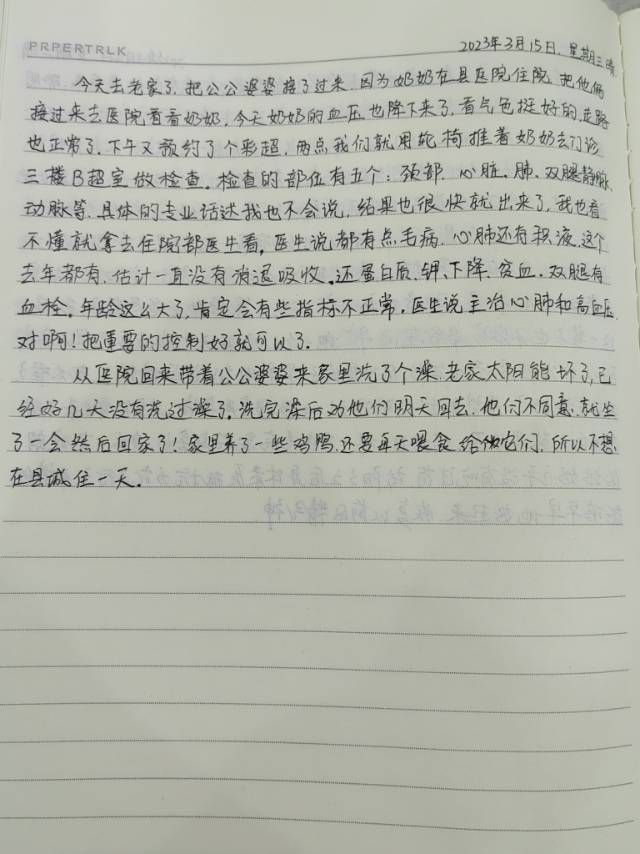 PRPERTRLK
2023年3月15日.星期三晴
今天去老家了.把公公婆婆接了过来.因为奶奶在县医院住院.把他俩
接过来去医院看看奶奶.今天奶奶的血压也降下来了,看气色挺好的,走路
也正常了.下午又预约了个彩超.两点我们就用轮椅推着奶奶去门诊
三楼B超室做检查.检查的部位有五个:颈部.心脏.肺.双腿静脉
动脉等.具体的专业话述我也不会说,结果也很快就出来了,我也看
不懂就拿去住院部医生看,医生说都有点毛病.心肺还有积液,这个
去年都有.估计一直没有消退吸收.还蛋白质.钾.下降.贫血.双腿有
血栓.年龄这么大了,肯定会有些指标不正常,医生说主治心肺和高血压
对啊!把重要的控制好就可以了.
从医院回来带着公公婆婆来家里洗了个澡.老家太阳能坏了,已
经好几天没有洗过澡了,洗完澡后劝他们明天回去.他们不同意.就坐
了一会然后回家了!家里养了一些鸡鸭.还要每天喂食给它们.所以不想
在县城住一天.